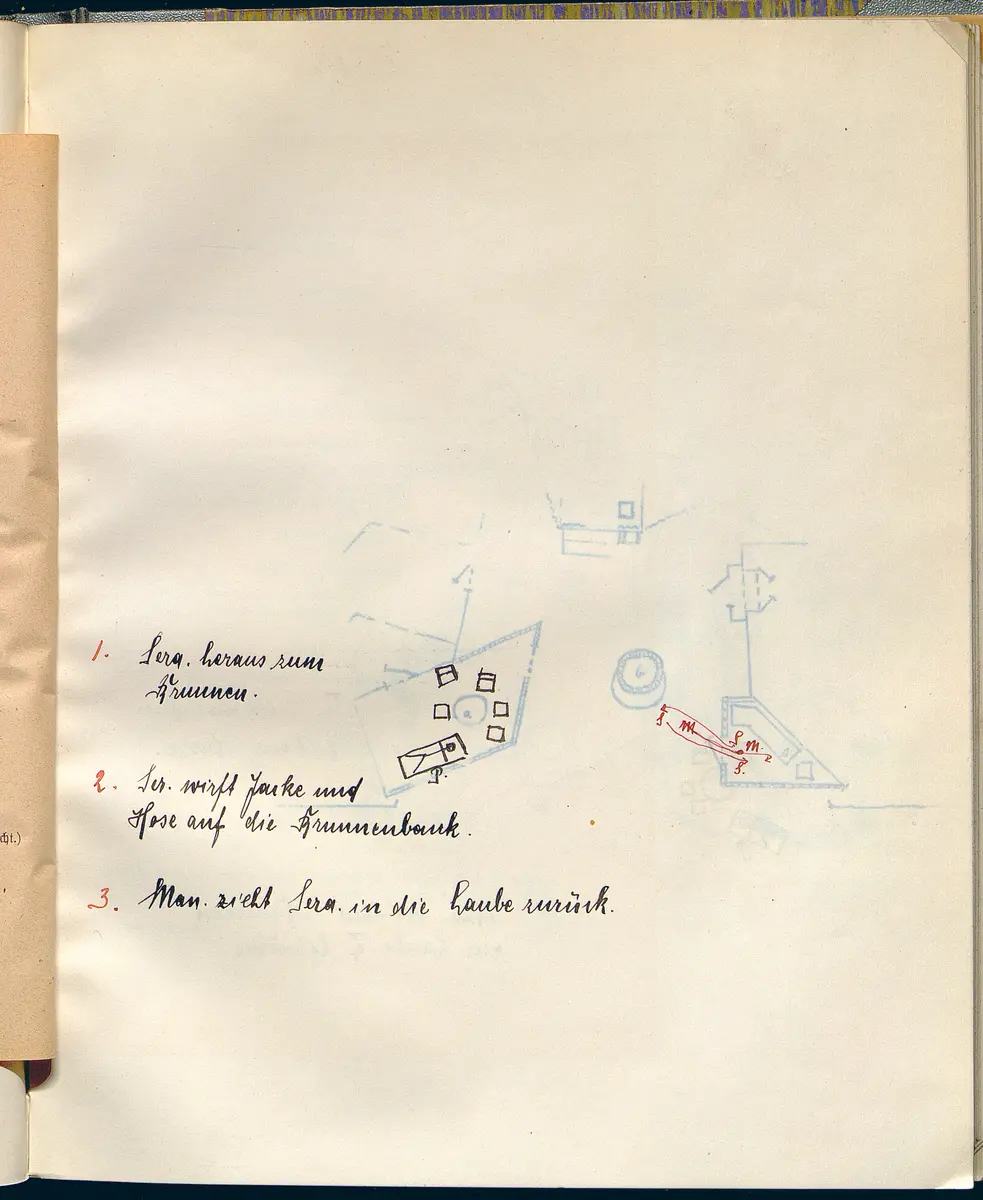 1. Serg. heraus zum
Brunnen.
2. Ser. wirft Jacke und
Hose auf die Brunnenbank.
3. Man. zieht Serg. in die Laube zurück.
a
P.
b
S M S M.
S.
cht.)